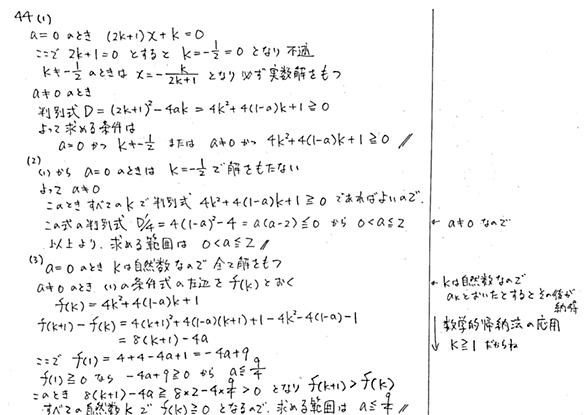 44 (1)
a=0 のとき (2k+1)x+k=0
ここで 2k+1=0 とすると k=-1/2=0 となり 不適
k≠-1/2 のときは x=-k/(2k+1) となり 必ず実数解をもつ
a≠0 のとき
判別式 D=(2k+1)²-4ak=4k²+4(1-a)k+1≧0
よって求める条件は
a=0 かつ k≠-1/2 または a≠0 かつ 4k²+4(1-a)k+1≧0 //
(2)
(1) から a=0 のときは k=-1/2 で解をもたない
よって a≠0
このとき すべての k で 判別式 4k²+4(1-a)k+1≧0 であればよいので.
この式の判別式 D/4=4(1-a)²-4=a(a-2)≦0 から 0<a≦2 ← a≠0 なので
以上より, 求める範囲は 0<a≦2 //
(3)
a=0 のとき kは自然数なので 全て解をもつ
a≠0 のとき (1) の条件式の左辺を f(k) とおく
← kは自然数なので
akとおいたとするとその後が
納得
f(k)=4k²+4(1-a)k+1
f(k+1)-f(k)=4(k+1)²+4(1-a)(k+1)+1-4k²-4(1-a)k-1
=8(k+1)-4a
数学的帰納法の応用
k≧1 だからね
ここで f(1)=4+4-4a+1=-4a+9
f(1)≧0 なら -4a+9≧0 から a≦9/4
このとき 8(k+1)-4a≧8×2-4×9/4>0 となり f(k+1)>f(k)
すべての自然数 k で f(k)≧0 となるので, 求める範囲は a≦9/4 //